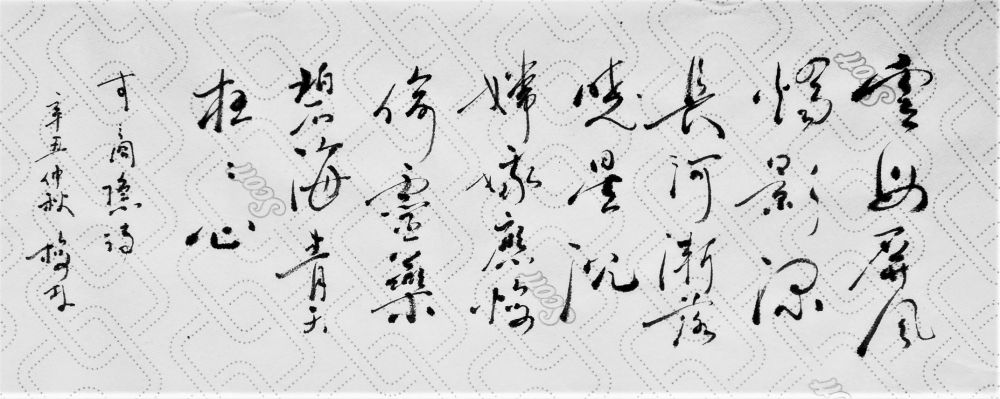 雲母屏風
燭影深
長河漸落
曉星沉
嫦娥應悔
偷靈藥
碧海青天
夜〻心
商隱詩
辛丑仲秋 梅